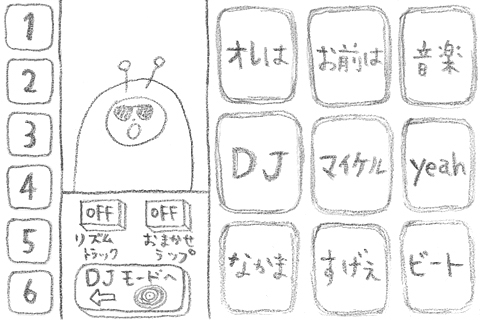 1
2
3
4
5
6
OFF
OFF
リズム
トラック
おまかせ
ラップ
DJモードへ
オレは
お前は
音楽
DJ
マイケル
yeah
なかま
すげぇ
ビート